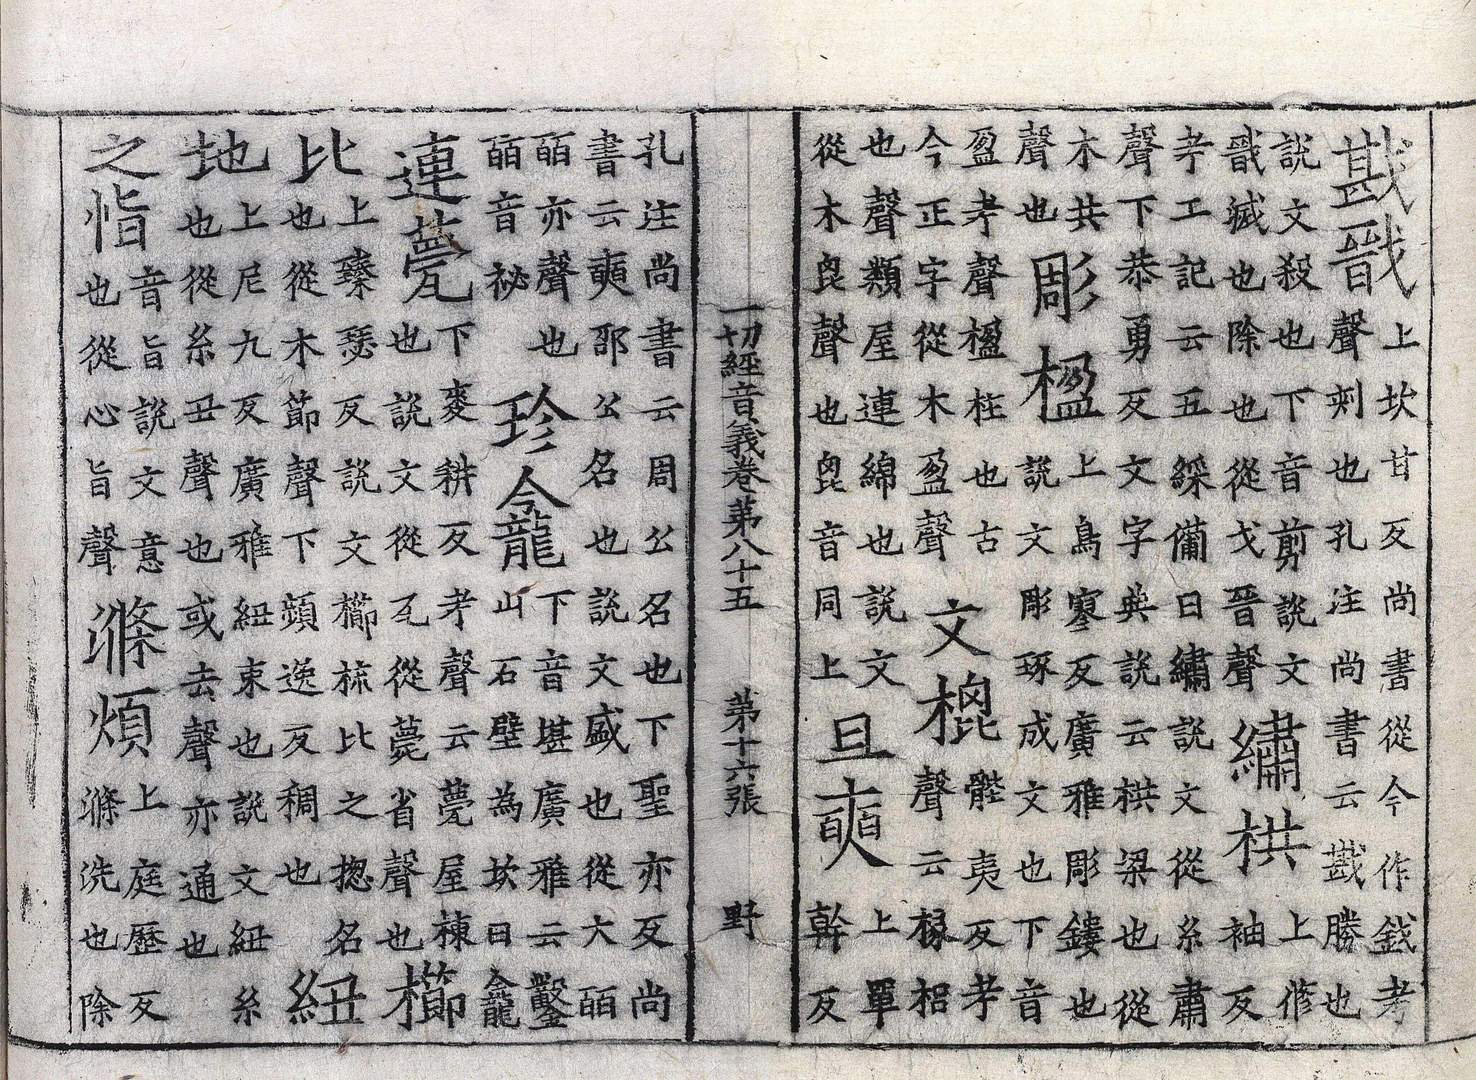 戡戩
上坎甘反尚書從今作㦰考
聲刺也孔注尚書云戡勝也
說文殺也下音剪說文
戩滅也除也從戈晉聲
繡栱
上修
袖反
考工記云五綵備曰繡說文從糸肅
聲下恭勇反文字典說云栱梁也從
木共
聲也
彫楹
上鳥寒反廣雅彫鏤也
說文彫琢成文也下音
盈考聲楹柱也古
今正字從木盈聲
文㮰
髀夷反考
聲云梠
也聲類屋連綿也說文
從木𣬉聲也𣬉音同上
旦奭
上單
幹反
一切經音義卷第八十五 第十六張 野
孔注尚書云周公名也下聖亦反尚
書云奭邵公名也說文盛也從大皕
皕亦聲也
皕音祕
珍龕
下音堪廣雅云鑿
山石壁為坎曰龕
連甍
下麦耕反考聲云甍屋棟
也說文從瓦從甍省聲也
櫛
比
上臻瑟反說文櫛梳比之揔名
也從木節聲下頻逸反稠也
紐
地
上尼九反廣雅紐束也說文紐糸
也從糸丑聲也或去聲亦通也
之恉
音旨說文意
也從心旨聲
滌煩
上庭歷反
滌洗也除